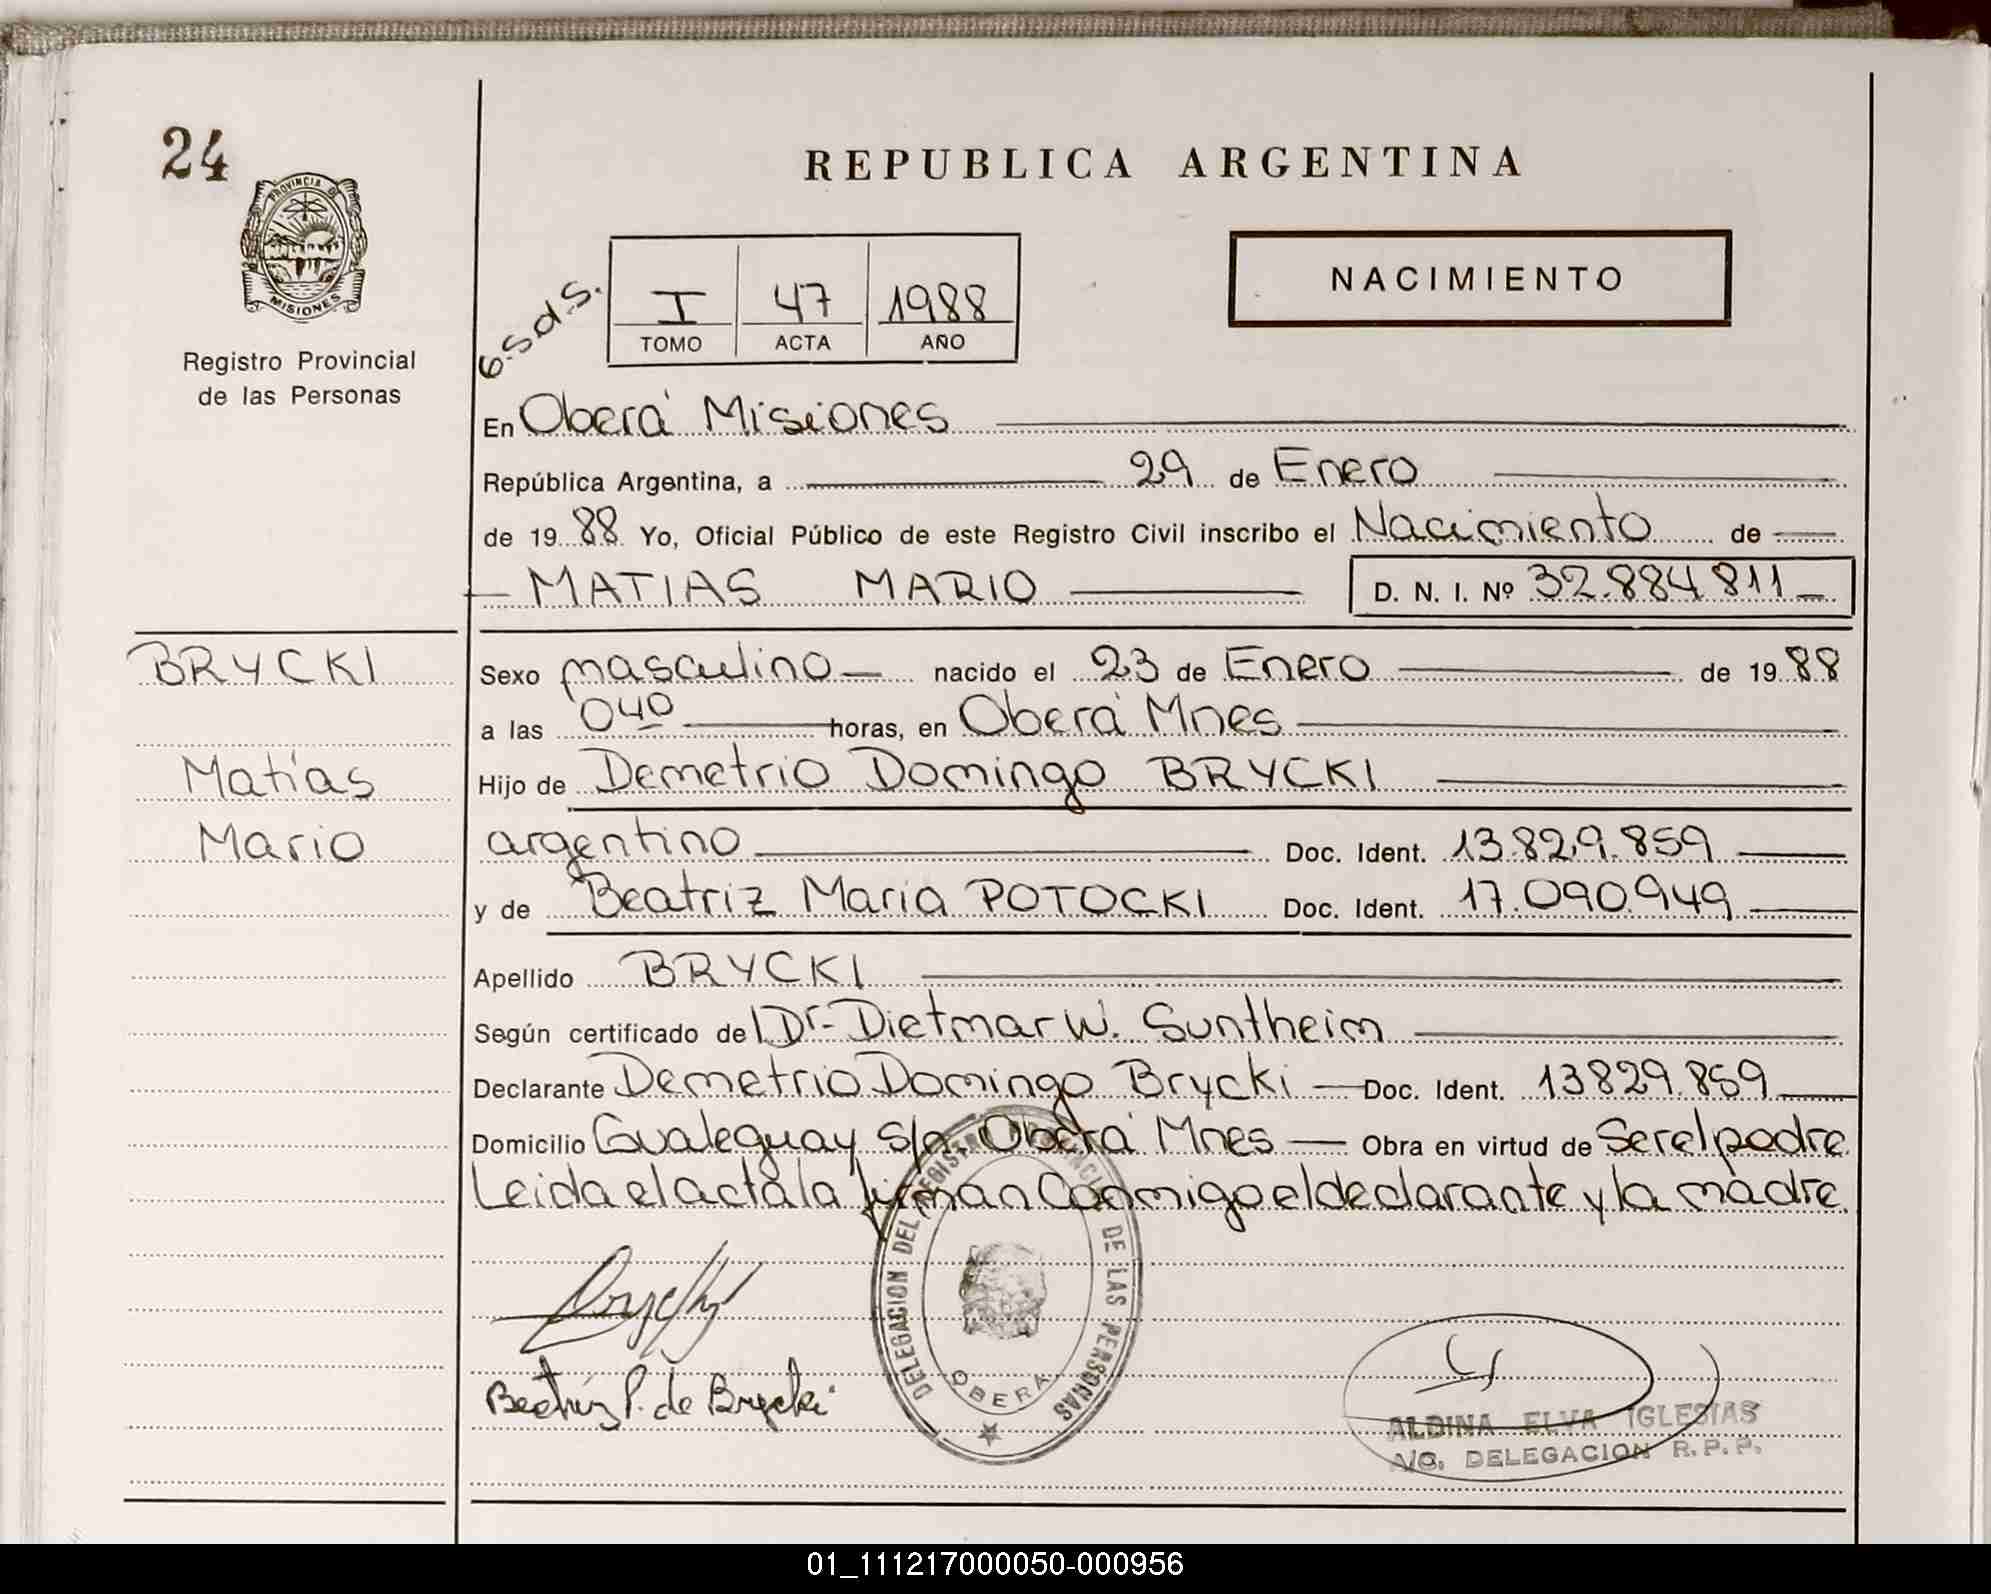 24
REPUBLICA ARGENTINA
PROVINCIA D
MISIONES
Registro Provincial
de las Personas
6.S.d.S.
I 47 1988
TOMO ACTA AÑO
NACIMIENTO
En Oberá Misiones
República Argentina, a 29 de Enero
de 1988 Yo, Oficial Público de este Registro Civil inscribo el Nacimiento de
MATIAS MARIO D. N. I. Nº 32.884.811
BRYCKI
Matías
Mario
Sexo masculino nacido el 23 de Enero de 1988
a las 040 horas, en Oberá Mnes
Hijo de Demetrio Domingo BRYCKI
argentino Doc. Ident. 13.829.859
y de Beatriz Maria POTOCKI Doc. Ident. 17.090.949
Apellido BRYCKI
Según certificado de Dr. Dietmar W. Suntheim
Declarante Demetrio Domingo Brycki Doc. Ident. 13829.859
Domicilio Gualeguay s/n Oberá Mnes Obra en virtud de Ser el padre
Leida el acta la firman Conmigo el declarante y la madre
Brycki
Beatriz P. de Brycki
DELEGACION DEL REGISTRO PROVINCIAL DE LAS PERSONAS
OBERA
ALDINA ELVA IGLESIAS
A/C. DELEGACION R.P.P.
01_111217000050-000956